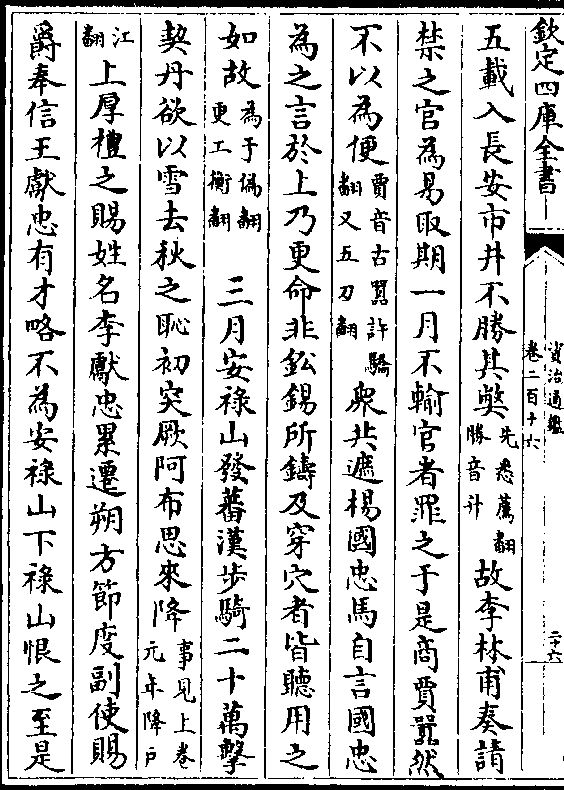 欽定四庫全書
資治通鑑
卷二百十六
二十六
五載入長安市井不勝其弊先悉薦翻勝音升故李林甫奏請
禁之官為易取期一月不輸官者罪之于是商賈囂然
不以為便賈音古囂許驕翻又五刀翻眾共遮楊國忠馬自言國忠
為之言於上乃更命非鈆錫所鑄及穿穴者皆聽用之
如故為于偽翻更工衡翻三月安祿山發蕃漢步騎二十萬擊
契丹欲以雪去秋之恥初突厥阿布思來降事見上卷元年降户
江翻上厚禮之賜姓名李獻忠累遷朔方節度副使賜
爵奉信王獻忠有才略不為安祿山下祿山恨之至是